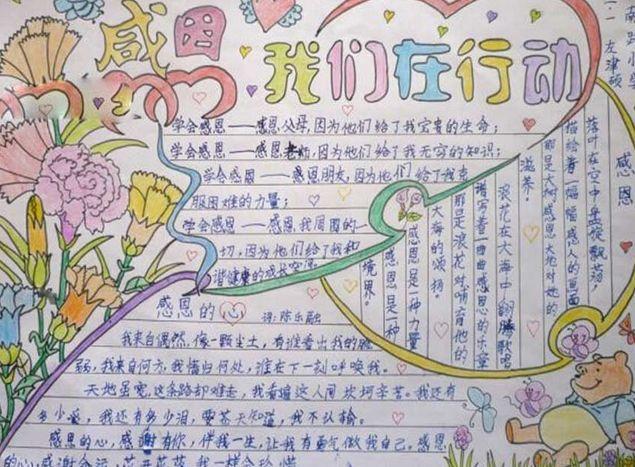 感恩
我们在行动
学会感恩——感恩父母,因为他们给了我宝贵的生命;
学会感恩——感恩老师,因为他们给了我无穷的知识;
学会感恩——感恩朋友,因为他们给了我克
服困难的力量;
学会感恩——感恩我周围的一
切,因为他们给了我和
谐健康的成长空间
感恩
落叶在空中盘旋飘荡,
描绘着一幅幅感人的画面
那是大树感恩大地对她的
滋养。
浪花在大海中翻腾歌唱
谱写着一曲曲感恩的乐章
那是浪花对哺育他的
大海的颂扬。
感恩是一种力量
感恩是一种
境界。
感恩的心
词:陈乐融
我来自偶然,像一颗尘土,有谁看出我的脆
弱,我来自何方,我情归何处,谁在下一刻呼唤我。
天地虽宽,这条路却难走,我看遍这人间坎坷辛苦。我还有
多少爱,我还有多少泪,要苍天知道,我不认输。
感恩的心,感谢有你,伴我一生,让我有勇气做我自己。感恩
的心,感谢命运,花开花落,我一样会珍惜
左津硕